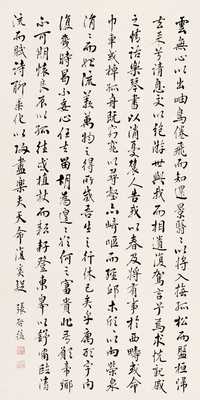 雲無心以出岫鳥倦飛而知還景翳翳以將入撫孤松而盤桓歸
去來兮請息交以絕游世與我而相遺復駕言兮焉求悅親戚
之情話樂琴書以消憂農人告我以春及將有事於西疇或命
巾車或棹孤舟既窈窕以尋壑亦崎嶇而經邱木欣欣以向榮泉
涓涓而始流羨萬物之得時感吾生之行休已矣乎寓形宇內
復幾時曷不委心任去留胡為遑遑欲何之富貴非吾願帝鄉
不可期懷良辰以孤往或植杖而耘耔登東皋以舒嘯臨清
流而賦詩聊乘化以歸盡樂夫天命復奚疑 張啓後